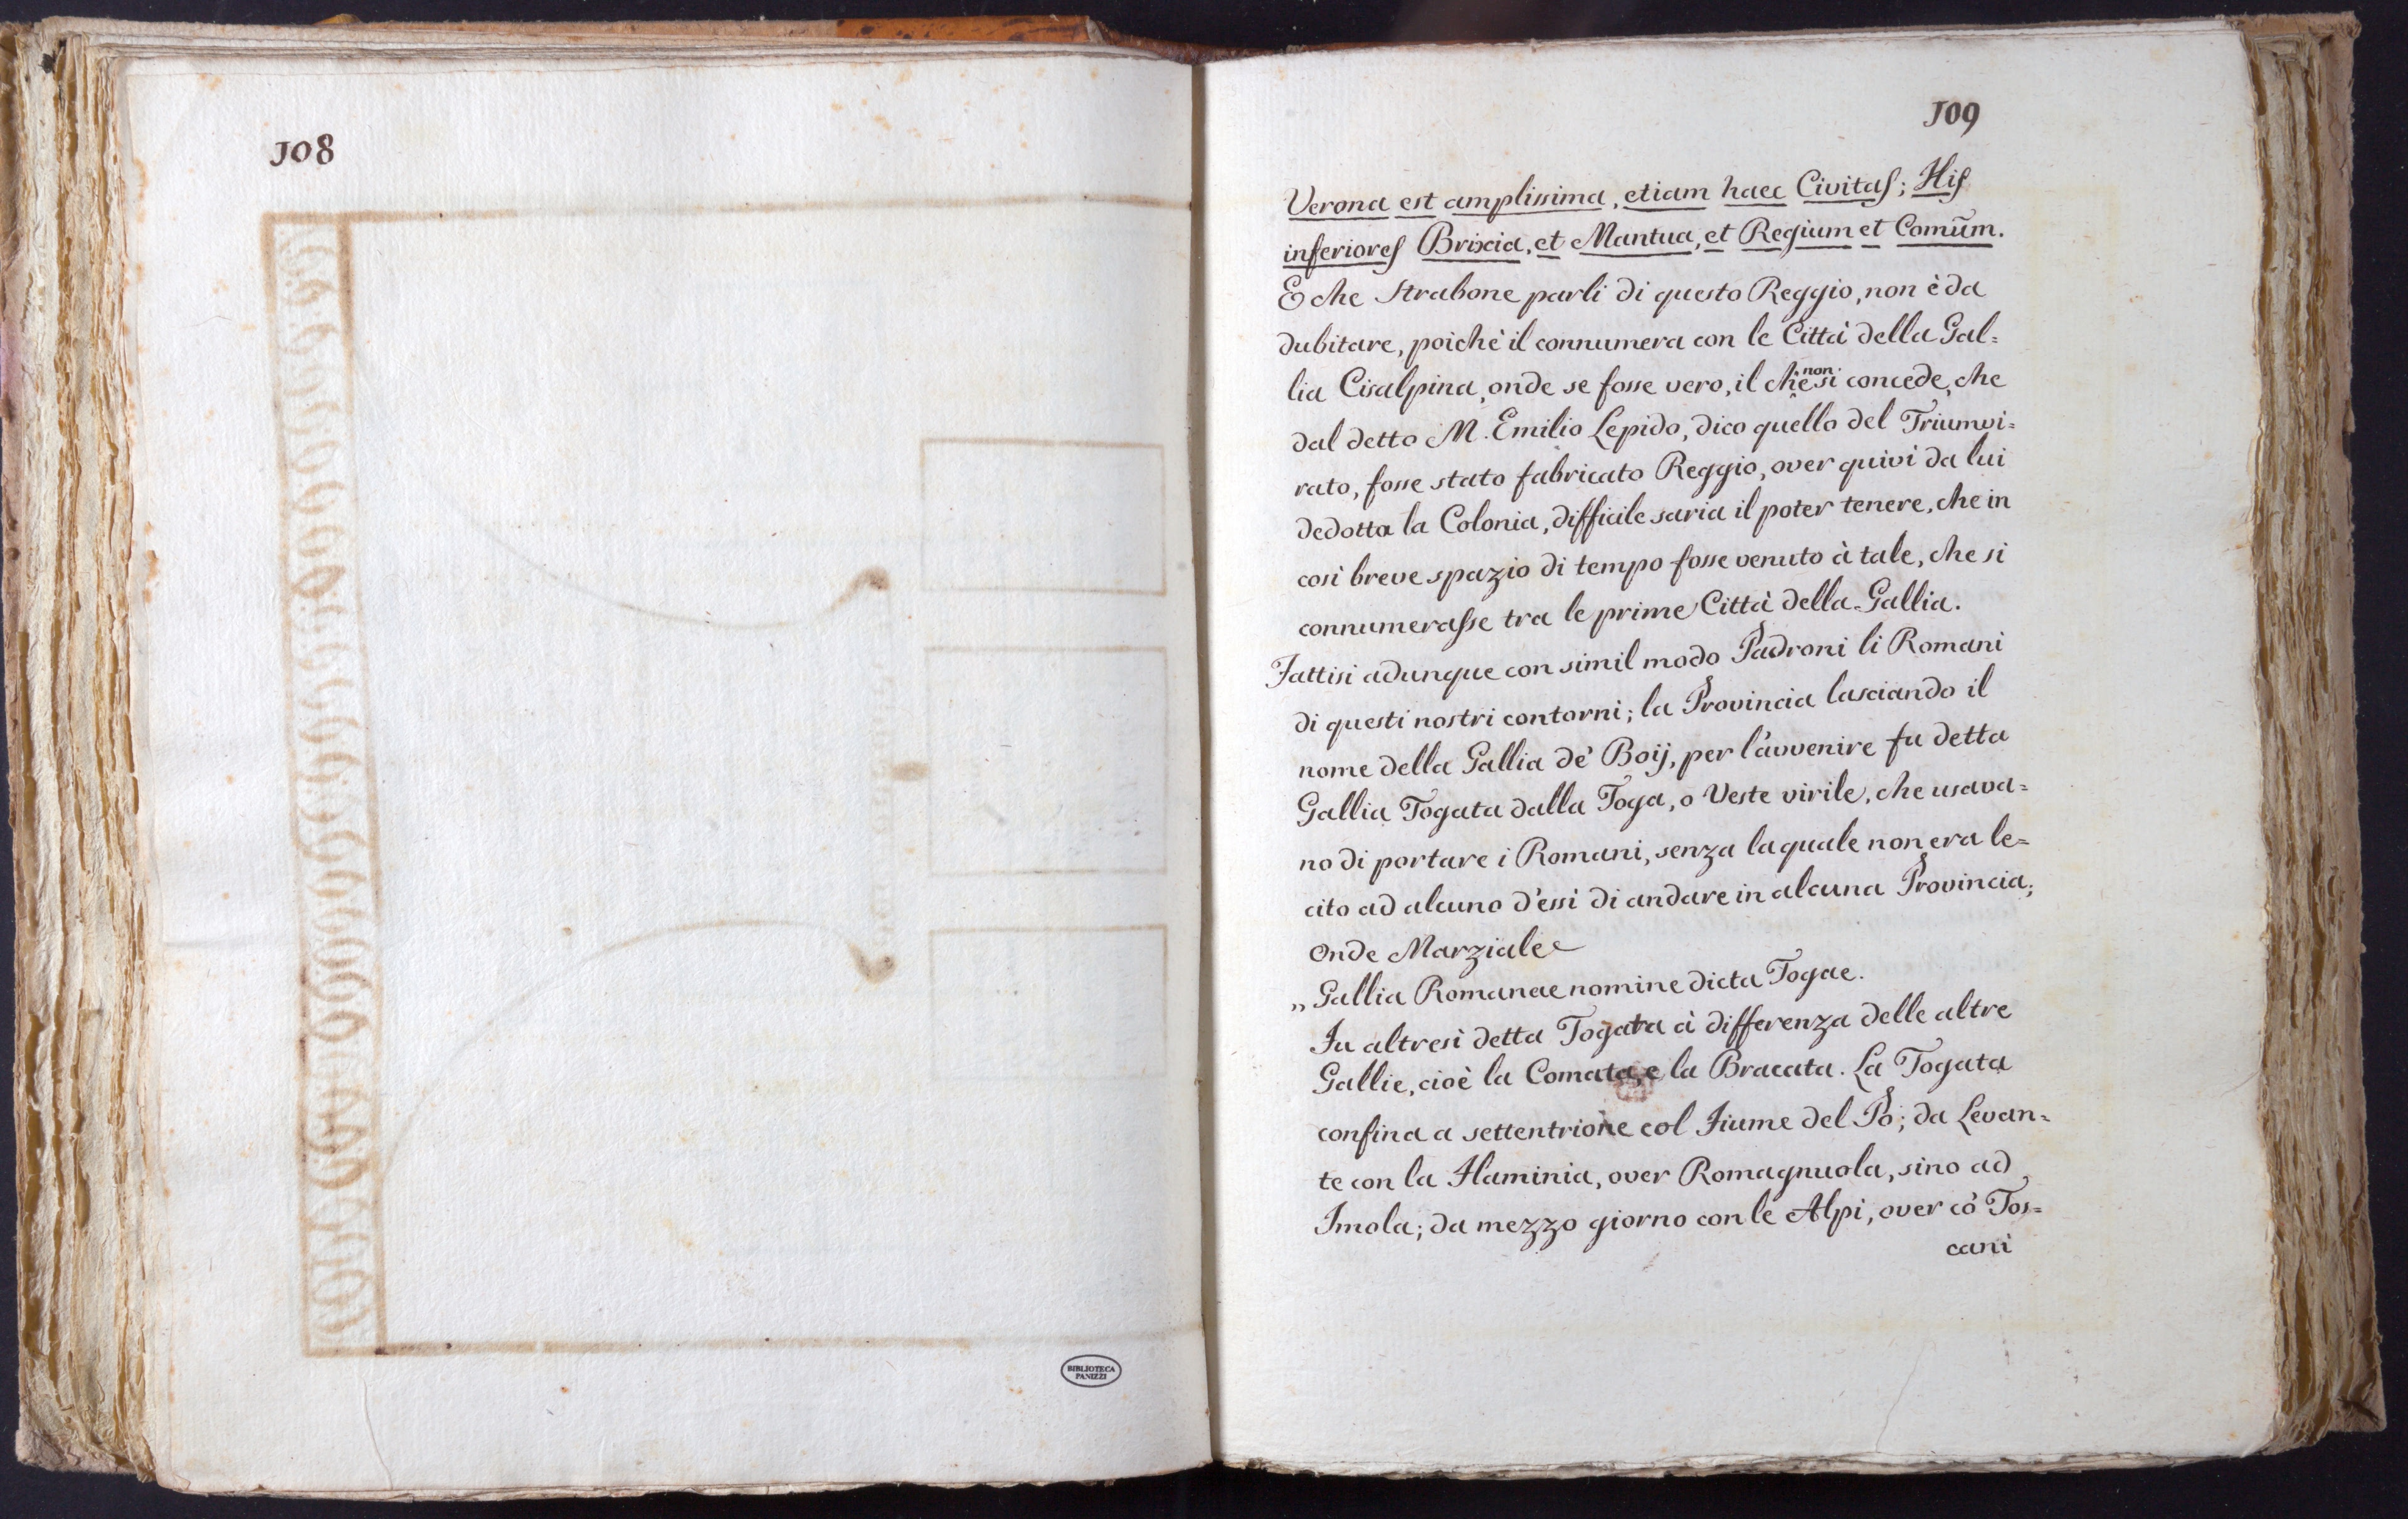 108
BIBLIOTECA
PANIZZI
109
Verona est amplissima, etiam haec Civitas; His
inferiores Brixia, et Mantua, et Regium et Comum̃.
E che Strabone parli di questo Reggio, non è da
dubitare, poichè il connumera con le Città della Gal=
lia Cisalpina, onde se fosse vero, il che non si concede, che
dal detto M. Emilio Lepido, dico quello del Triumvi=
rato, fosse stato fabricato Reggio, over quivi da lui
dedotta la Colonia, difficile saria il poter tenere, che in
così breve spazio di tempo fosse venuto à tale, che si
connumerasse tra le prime Città della Gallia.
Fattisi adunque con simil modo Padroni li Romani
di questi nostri contorni; la Provincia lasciando il
nome della Gallia de' Boij, per l'avvenire fu detta
Gallia Togata dalla Toga, o Veste virile, che usava=
no di portare i Romani, senza la quale non era le=
cito ad alcuno d'essi di andare in alcuna Provincia;
Onde Marziale
„ Gallia Romanae nomine dicta Togae.
Fu altresì detta Togata à differenza delle altre
Gallie, cioè la Comata, e la Bracata. La Togata
confina a settentrione col Fiume del Pò; da Levan=
te con la Flaminia, over Romagnuola, sino ad
Imola; da mezzo giorno con le Alpi, over cò Tos=
cani